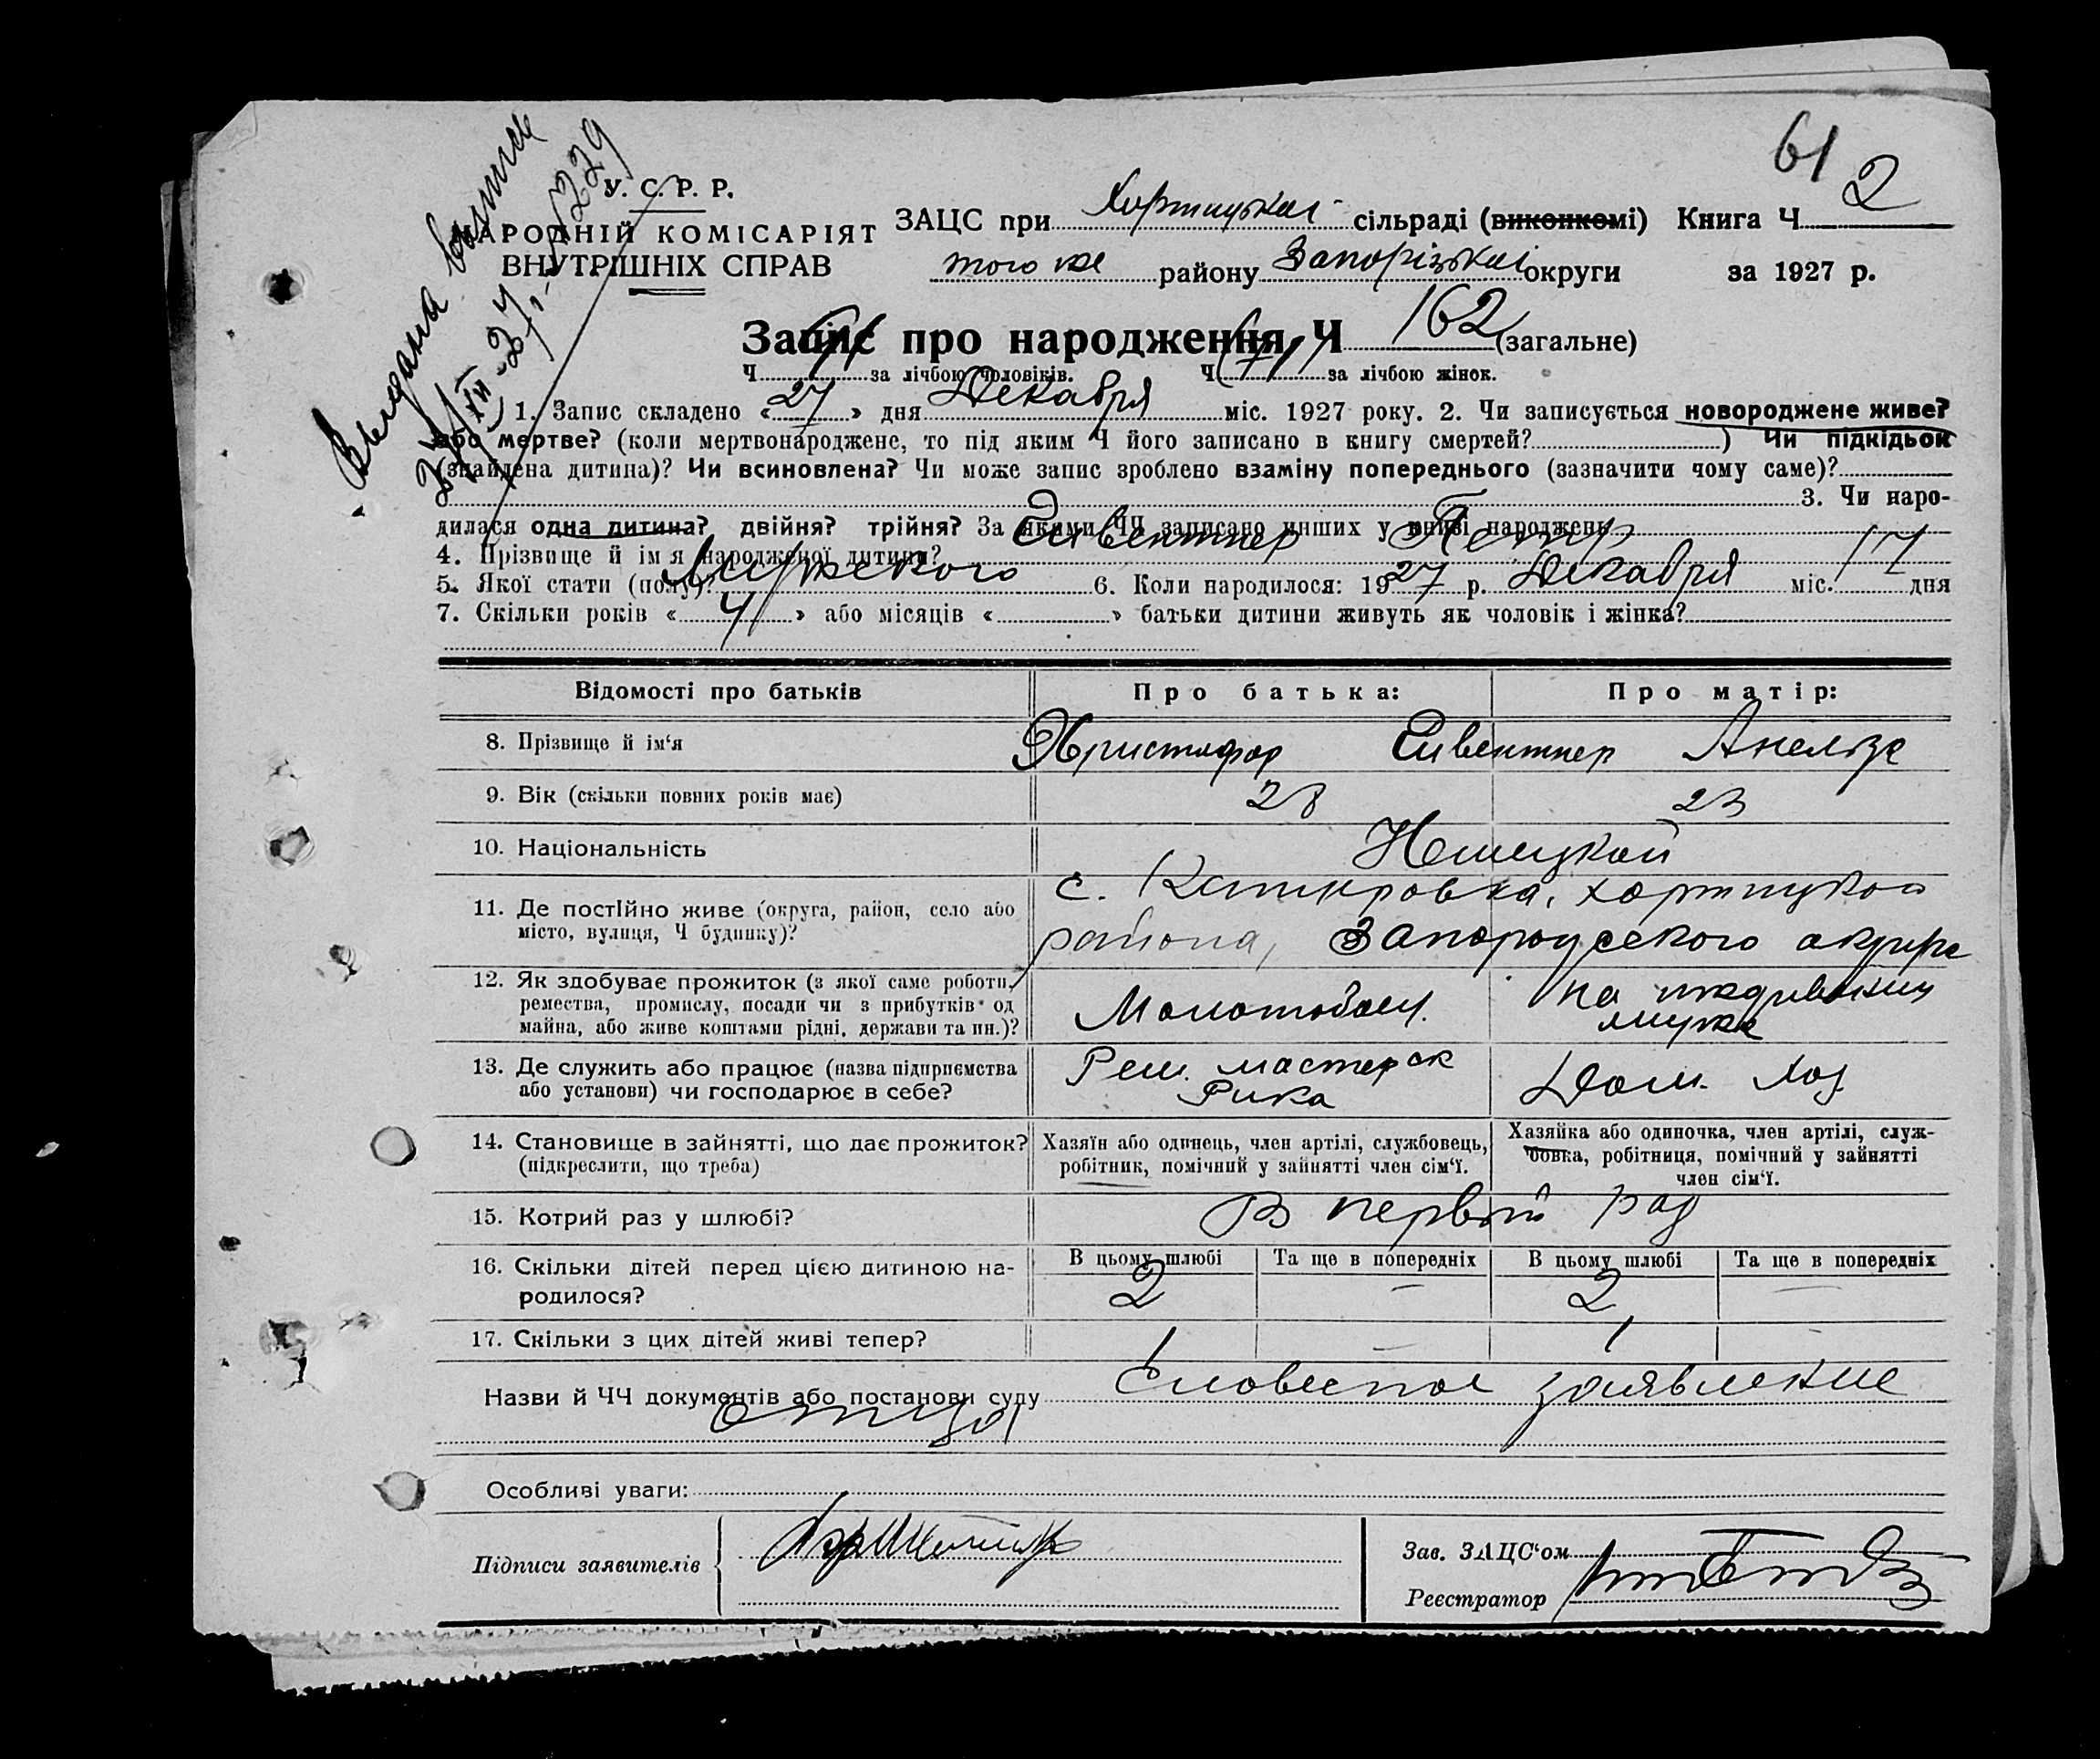 61
2
Выдана выпись
27/XII-27 г. 1229
У. С. Р. Р.
НАРОДНІЙ КОМІСАРІЯТ
ВНУТРІШНІХ СПРАВ
ЗАЦС при Хортицькій сільраді (виконкомі) Книга Ч
того же району Запорізької округи за 1927 р.
Запис про народження Ч 162 (загальне)
Ч 91 за лічбою чоловіків. Ч (71) за лічбою жінок.
1. Запис складено «27» дня Декабря міс. 1927 року. 2. Чи записується новороджене живе?
або мертве? (коли мертвонароджене, то під яким Ч його записано в книгу смертей? ) Чи підкідьок
(знайдена дитина)? Чи всиновлена? Чи може запис зроблено взаміну попереднього (зазначити чому саме)?
3. Чи наро-
дилася одна дитина? двійня? трійня? За якими ЧЧ записано инших у книзі народжень
4. Прізвище й ім'я народженої дитини? Сивентнер Петр
5. Якої стати (полу)? Мужского 6. Коли народилося: 1927 р. Декабря міс. 17 дня
7. Скільки років «4» або місяців « » батьки дитини живуть як чоловік і жінка?
Відомості про батьків Про батька: Про матір:
8. Прізвище й ім'я Христофор Сивентнер
9. Вік (скільки повних років має) 28 23
10. Національність Немецкой
11. Де постійно живе (округа, район, село або
місто, вулиця, Ч будинку)?
с. хортицкого
района, Запорожского округа
12. Як здобуває прожиток (з якої саме роботи,
ремества, промислу, посади чи з прибутків од
майна, або живе коштами рідні, держави та ин.)?
Молотобоец.
на иждивении
мужа
13. Де служить або працює (назва підприємства
або установи) чи господарює в себе?
Рем. мастерск
Рика
Дом. Хоз
14. Становище в зайнятті, що дає прожиток?
(підкреслити, що треба)
Хазяїн або одинець, член артілі, службовець,
робітник, помічний у зайнятті член сім'ї.
Хазяйка або одиночка, член артілі, служ-
бовка, робітниця, помічний у зайнятті
член сім'ї.
15. Котрий раз у шлюбі? В первый раз
16. Скільки дітей перед цією дитиною на-
родилося?
В цьому шлюбі Та ще в попередніх В цьому шлюбі Та ще в попередніх
2 — 2 —
17. Скільки з цих дітей живі тепер? 1 — 1 —
Назви й ЧЧ документів або постанови суду Словесное заявление
отца
Особливі уваги:
Підписи заявителів
Зав. ЗАЦС'ом
Реєстратор